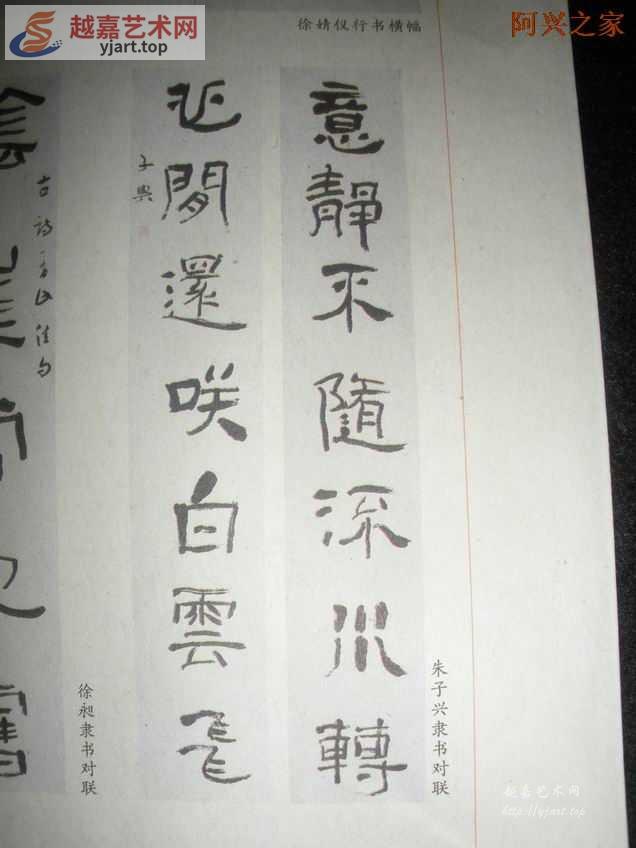 越嘉艺术网
yjart.top
阿兴之家
徐婧仪行书横幅
意靜不隨流水轉
心閒還咲白雲飛
子興
朱子兴隶书对联
古詩
佳句
徐昶隶书对联
越嘉艺术网
http://yjart.top